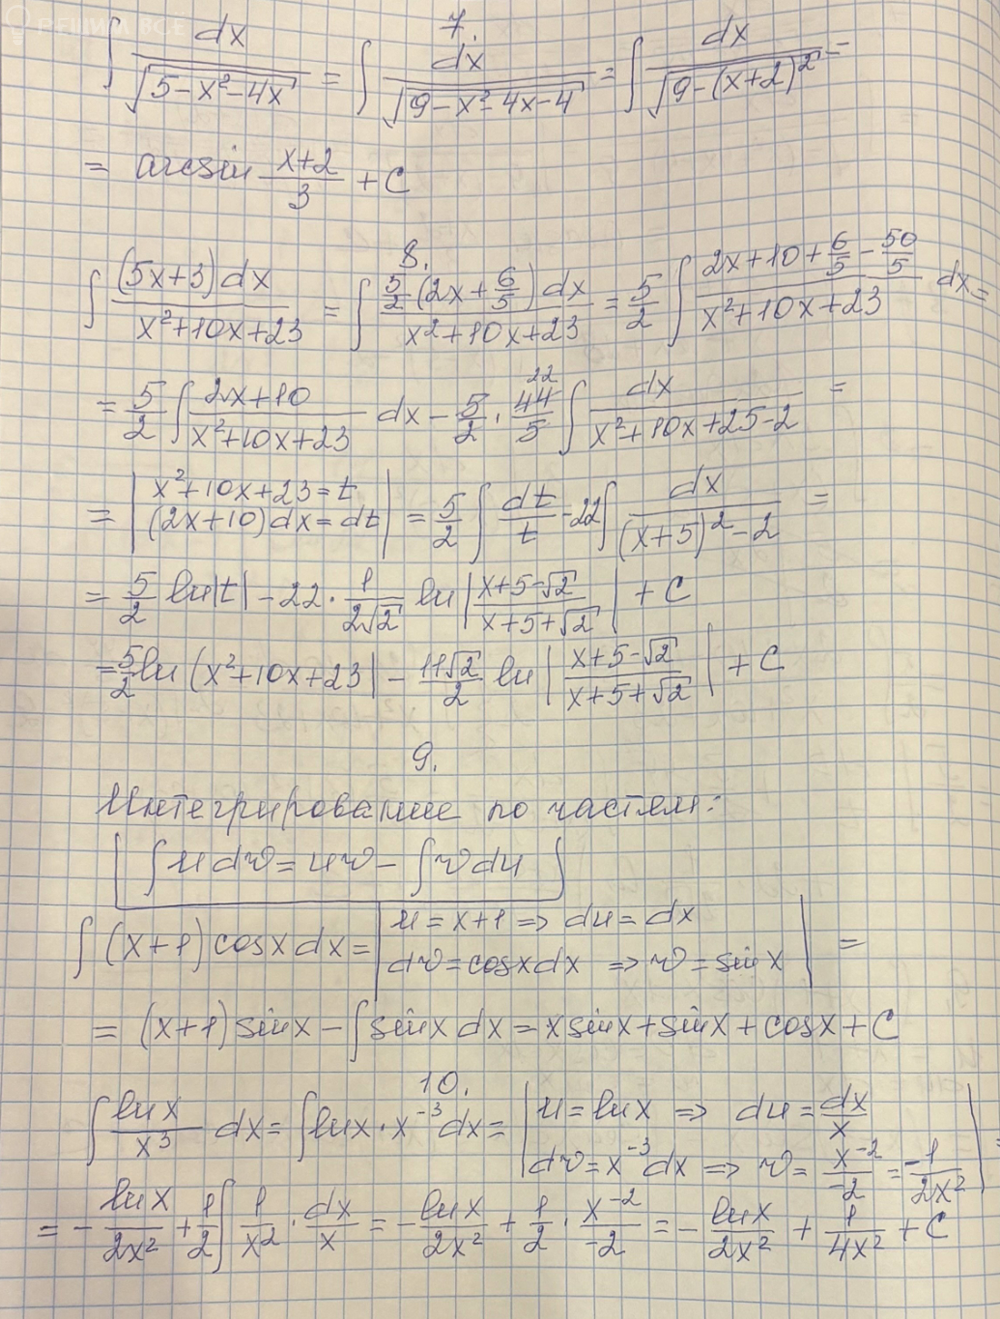 РЕШИМ ВСЁ
7.
∫ dx/√(5-x²-4x) = ∫ dx/√(9-x²-4x-4) = ∫ dx/√(9-(x+2)²) =
= arcsin (x+2)/3 + C
8.
∫ (5x+3)dx/(x²+10x+23) = ∫ 5/2(2x+6/5)dx/(x²+10x+23) = 5/2 ∫ (2x+10+6/5-50/5)/(x²+10x+23) dx =
= 5/2 ∫ (2x+10)/(x²+10x+23) dx - 5/2 · 44/5 22 ∫ dx/(x²+10x+25-2) =
= | x²+10x+23=t
(2x+10)dx=dt | = 5/2 ∫ dt/t - 22 ∫ dx/((x+5)²-2) =
= 5/2 ln|t| - 22 · 1/(2√2) ln |(x+5-√2)/(x+5+√2)| + C
= 5/2 ln (x²+10x+23| - 11√2/2 ln |(x+5-√2)/(x+5+√2)| + C
9.
Интегрирование по частям:
∫ u dv = uv - ∫ v du
∫ (x+1) cosx dx = | u = x+1 => du = dx
dv = cosx dx => v = sinx | =
= (x+1) sinx - ∫ sinx dx = x sinx + sinx + cosx + C
10.
∫ lnx/x³ dx = ∫ lnx · x⁻³ dx = | u = lnx => du = dx/x
dv = x⁻³ dx => v = x⁻²/-2 = -1/(2x²) | =
= - lnx/(2x²) + 1/2 ∫ 1/x² · dx/x = - lnx/(2x²) + 1/2 · x⁻²/-2 = - lnx/(2x²) + 1/(4x²) + C